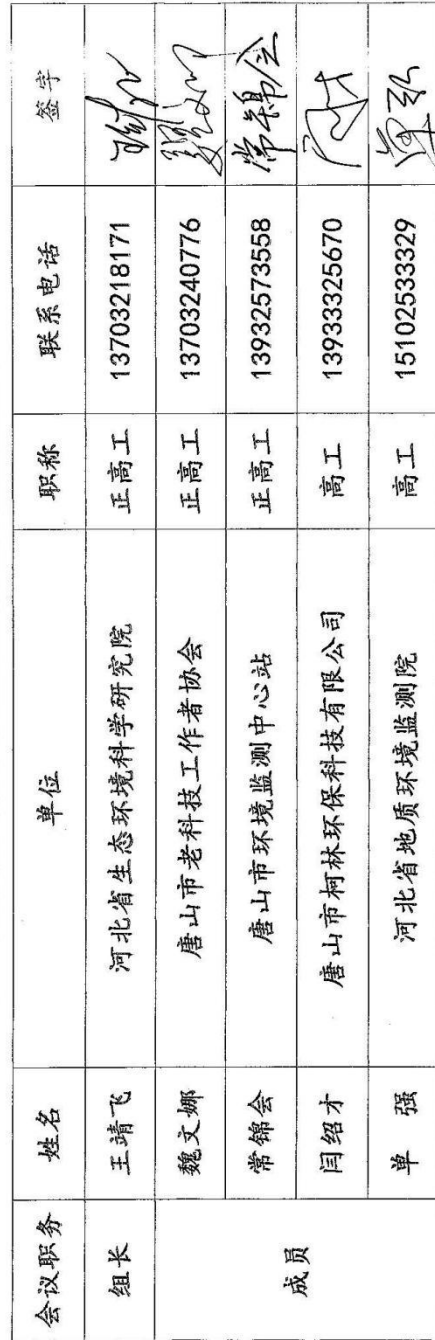 会议职务 姓名 单位 职称 联系电话 签字
组长 王靖飞 河北省生态环境科学研究院 正高工 13703218171
成员 魏文娜 唐山市老科技工作者协会 正高工 13703240776 魏文娜
常锦会 唐山市环境监测中心站 正高工 13932573558 常锦会
闫绍才 唐山市柯林环保科技有限公司 高工 13933325670
单 强 河北省地质环境监测院 高工 15102533329 单强